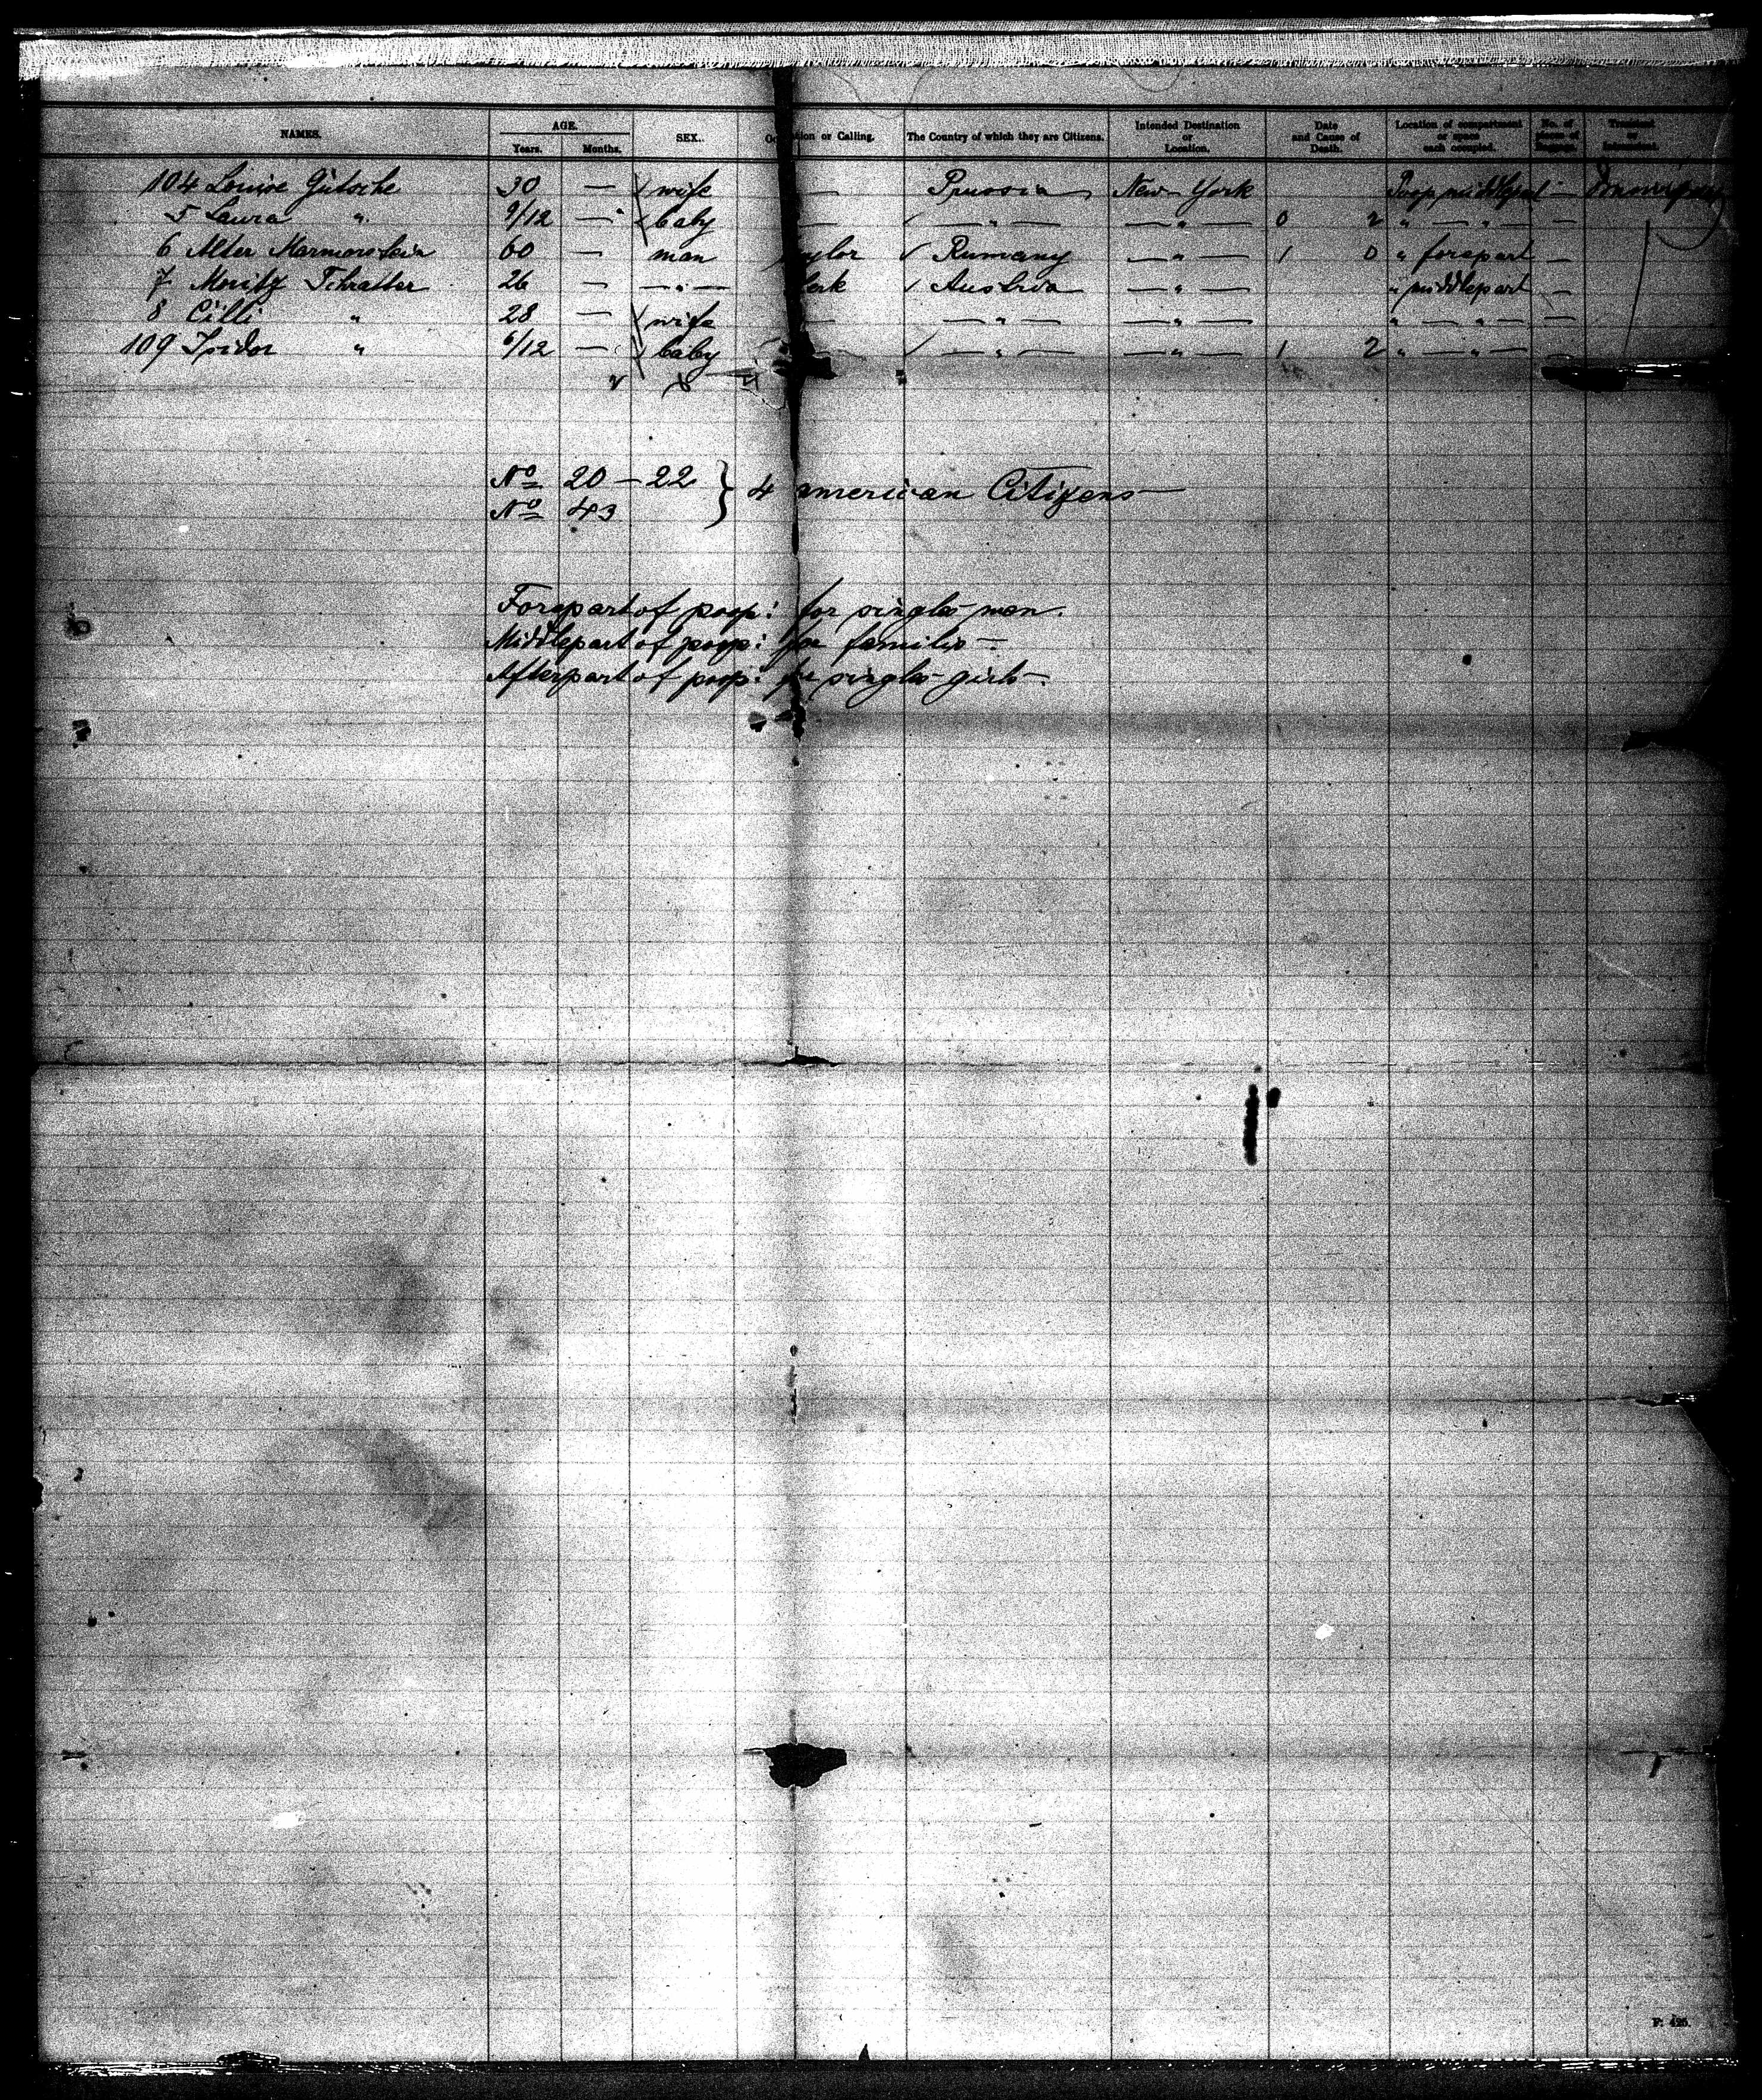 NAMES. AGE. Years. Months. SEX. Occupation or Calling. The Country of which they are Citizens. Intended Destination or Location. Date and Cause of Death. Location of compartment or space each occupied. No. of pieces of Baggage. Transient or Intransient.
104 Louise Gütsche 30 — wife — Prussia New York Poop middlepart —
5 Laura " 9/12 — baby — — " — — " — 0 2 " — " — —
6 Alter Marmorstein 60 — man aylor Rumany — " — 1 0 " forepart —
7 Moritz Schratter 26 — — " — lerk Austria — " — " middlepart —
8 Cilli " 28 — wife — — " — — " — " — " — —
109 Isidor " 6/12 — baby — " — — " — 1 2 " — " — —
No 20 — 22 } 4 american Citizens —
No 43
Forepart of poop: for single men.
Middlepart of poop: for familis —
Afterpart of poop: for single girls —.
F: 425.